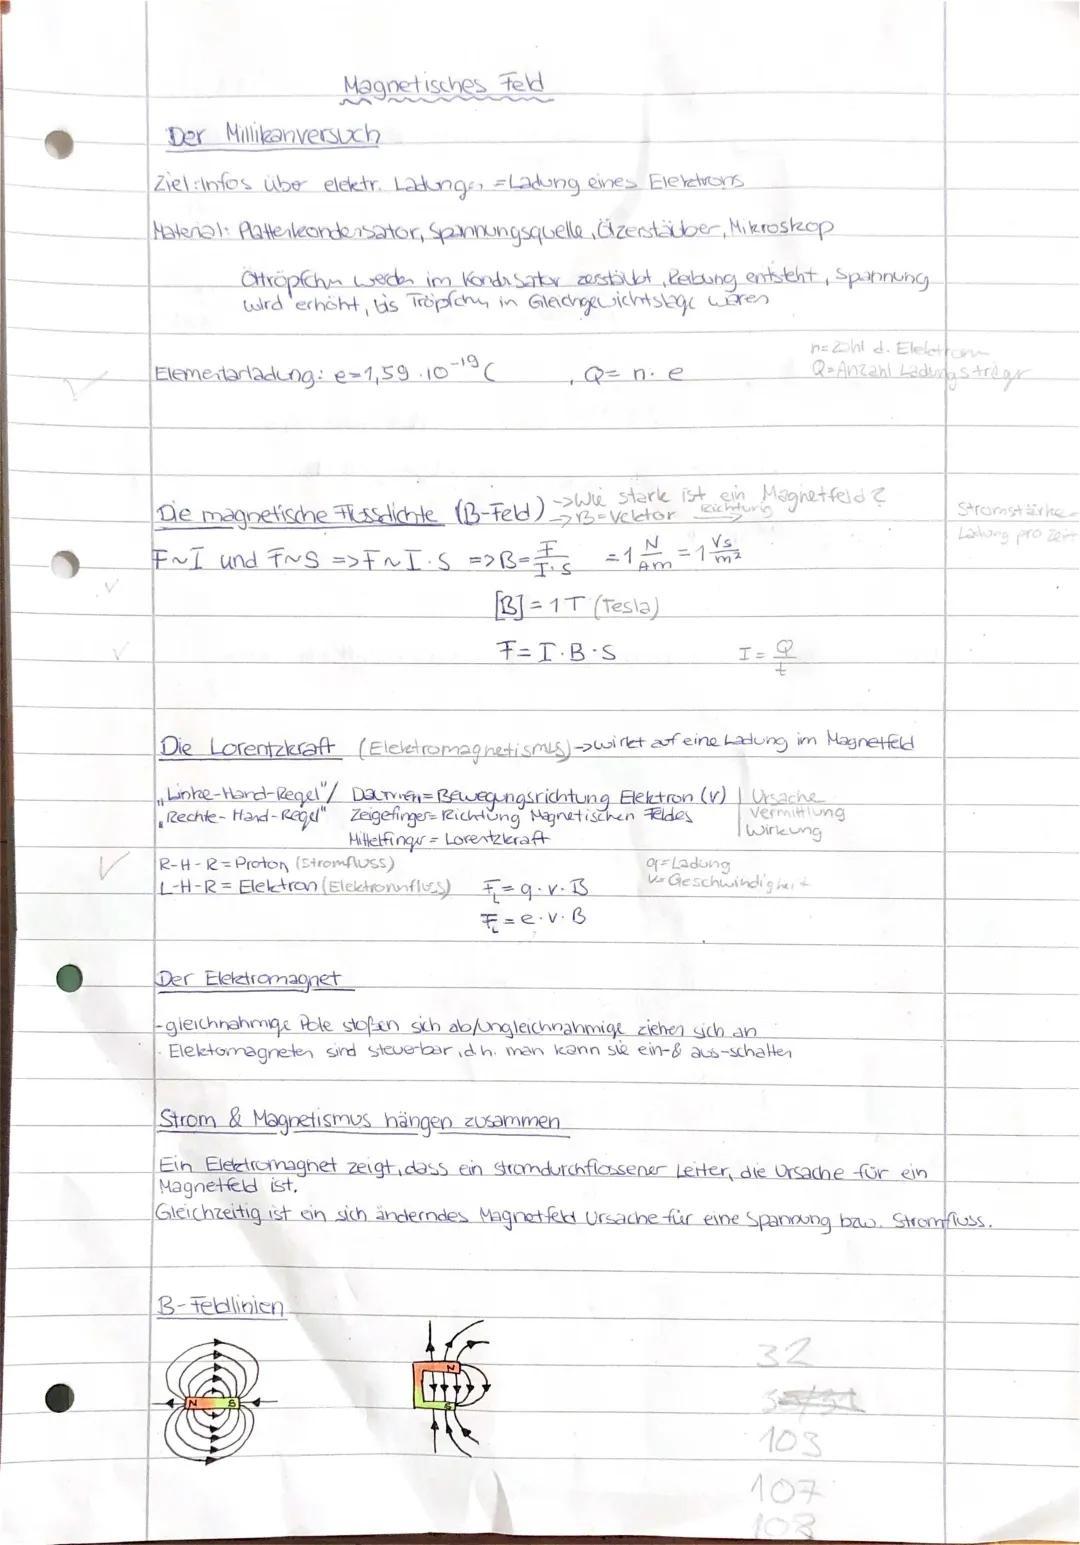 Magnetisches Feld
Der Millikanversuch
Ziel: Infos über elektr. Ladungen = Ladung eines Elektrons
Material: Plattenkondensator, Spannungsquelle, Ölzerstäuber, Mikroskop
Öltröpfchn werden im Kondisator zerstäubt, Reibung entsteht, Spannung
wird erhöht, bis Tröpfchn in Gleichgewichtslage wären
n= Zahl d. Elektronen
Elementarladung: e=1,59·10⁻¹⁹C , Q= n·e
Q=Anzahl Ladungsträger
Die magnetische Flussdichte (B-Feld) ->Wie stark ist ein Magnetfeld?
->B=Vektor Richtung
Stromstärke=
Ladung pro Zeit
F~I und F~S =>F~I·S =>B=F/I·S =1 N/Am =1 Vs/m²
[B]=1T (Tesla)
F=I·B·S I=Q/t
Die Lorentzkraft (Elektromagnetismus)->wirkt auf eine Ladung im Magnetfeld
„Linke-Hand-Regel"/ Daumen=Bewegungsrichtung Elektron (v) | Ursache
„Rechte-Hand-Regel" Zeigefinger=Richtung Magnetischen Feldes | Vermittlung
Mittelfinger=Lorentzkraft | Wirkung
R-H-R=Proton (Stromfluss) q=Ladung
L-H-R=Elektron (Elektronnfluss) F_L=q·v·B v=Geschwindigkeit
F_L=e·v·B
Der Elektromagnet
-gleichnahmige Pole stoßen sich ab/ungleichnahmige ziehen sich an
- Elektomagneten sind steuerbar, d.h. man kann sie ein-& aus-schalten
Strom & Magnetismus hängen zusammen
Ein Elektromagnet zeigt, dass ein stromdurchflossener Leiter, die Ursache für ein
Magnetfeld ist.
Gleichzeitig ist ein sich änderndes Magnetfeld Ursache für eine Spannung bzw. Stromfluss.
B-Feldlinien
N S
N
S
32
103
107
108